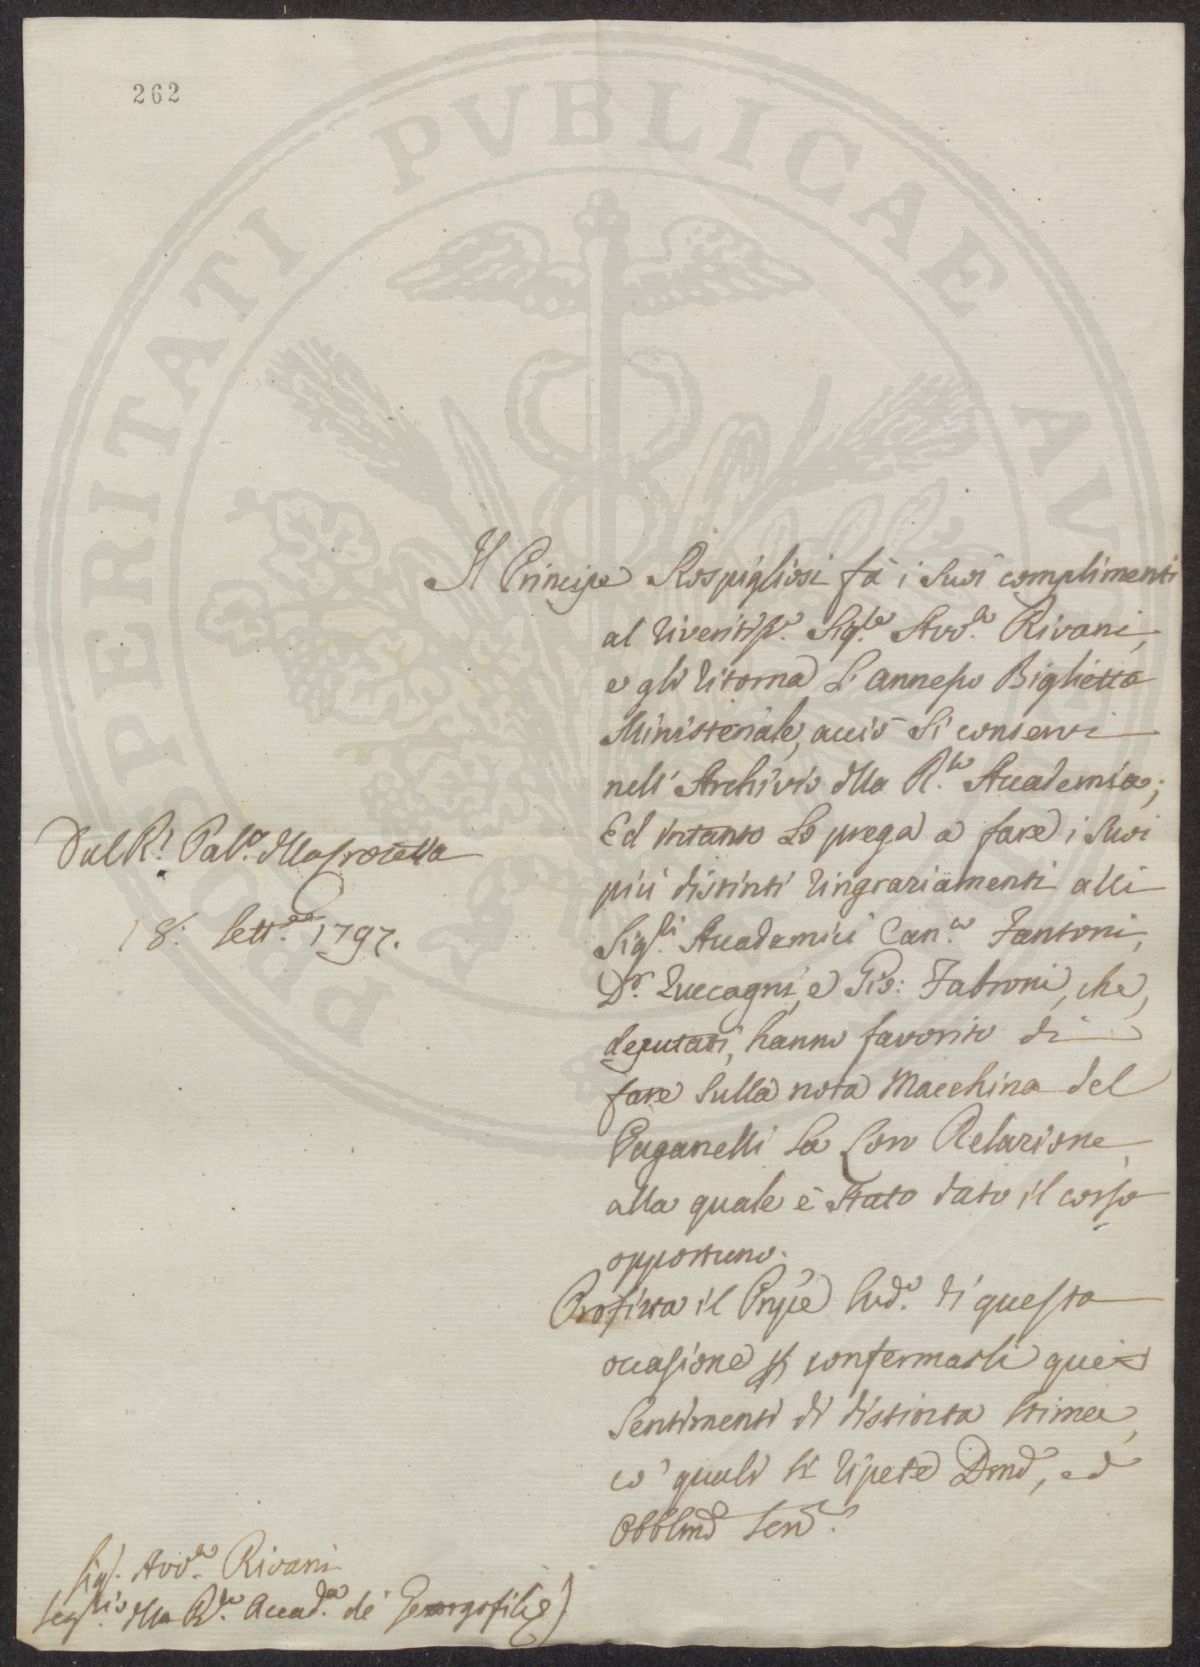 262
PROSPERITATI PVBLICAE AV
Il Principe Rospigliosi fà i suoi complimenti
al riveritiss.º Sig.re Avv.to Rivani,
e gli ritorna l'annesso Biglietto
Ministeriale, acciò si conservi
nell'Archivio dlla R.le Accademia;
Ed intanto lo prega a fare i suoi
più distinti ringraziamenti alli
Sig.ri Accademici Can.co Fantoni,
D.r Zuccagni, e Gio: Fabroni, che,
deputati, hanno favorito di
fare sulla nota Macchina del
Paganelli la loro Relazione,
alla quale è stato dato il corso
opportuno.
Profitta il Pnpe sud.º di questa
occasione p confermarli quei
sentimenti di distinta stima,
co' quali si ripete Dmo, ed
Obblmo Serv.e
Dal R.l Pal.o dlla Crocetta
18: Sett.re 1797.
Sig.r Avv.to Rivani
Seg.rio dlla R.le Accad.a de' Georgofili